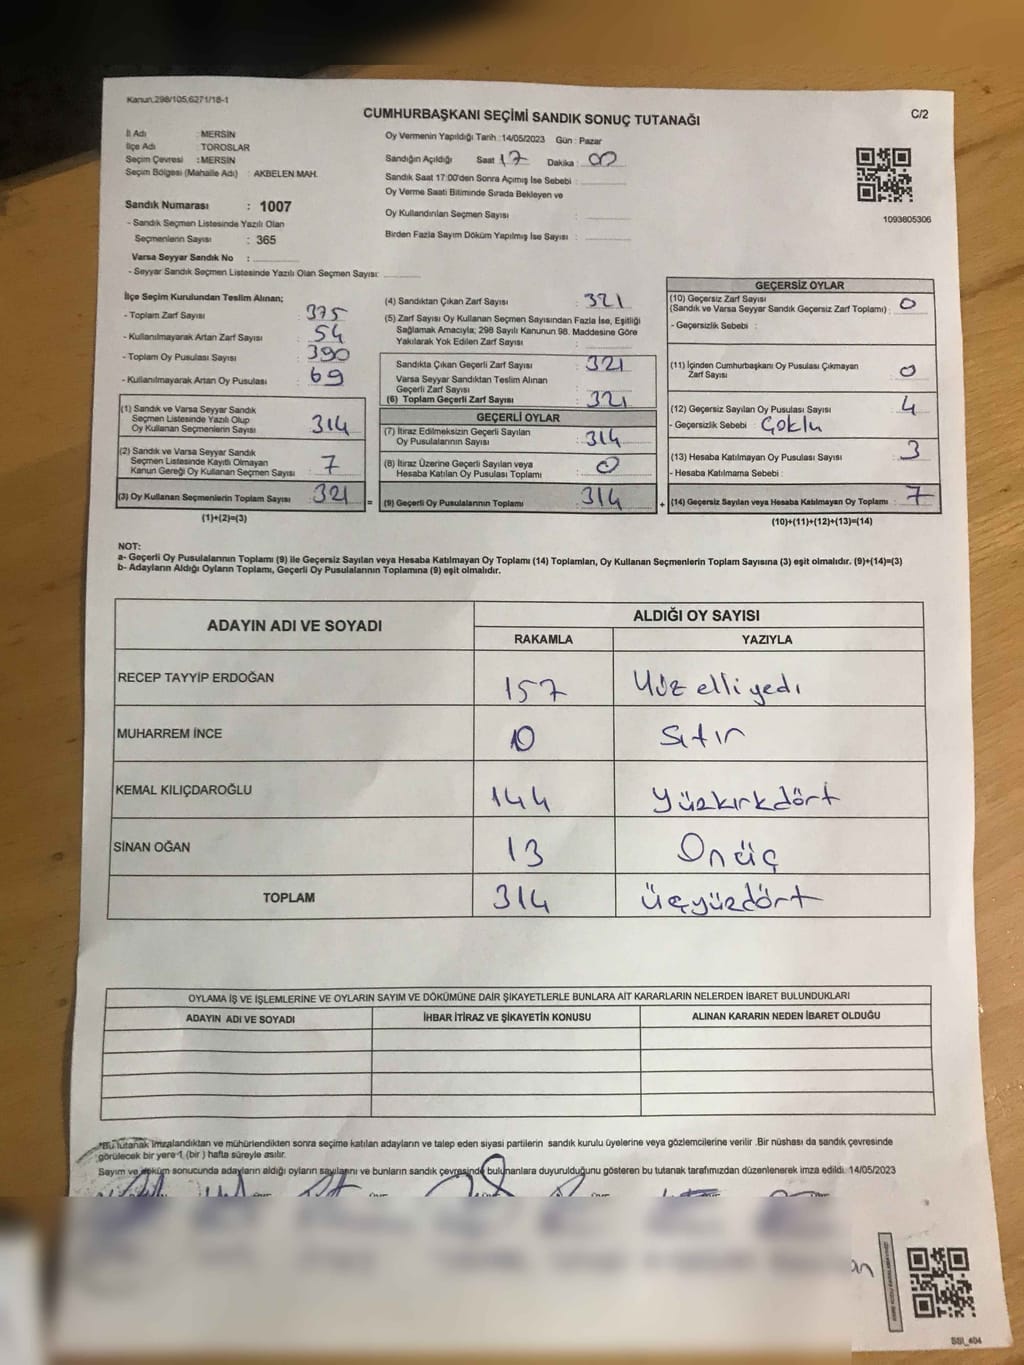 Kanun.298/105,6271/18-1
CUMHURBAŞKANI SEÇİMİ SANDIK SONUÇ TUTANAĞI
C/2
İl Adı : MERSİN
İlçe Adı : TOROSLAR
Seçim Çevresi : MERSİN
Seçim Bölgesi (Mahalle Adı) : AKBELEN MAH.
Sandık Numarası : 1007
- Sandık Seçmen Listesinde Yazılı Olan
Seçmenlerin Sayısı : 365
Varsa Seyyar Sandık No :
- Seyyar Sandık Seçmen Listesinde Yazılı Olan Seçmen Sayısı:
Oy Vermenin Yapıldığı Tarih : 14/05/2023 Gün : Pazar
Sandığın Açıldığı Saat 17 Dakika : 00
Sandık Saat 17:00'den Sonra Açımış İse Sebebi :
Oy Verme Saati Bitiminde Sırada Bekleyen ve
Oy Kullandırılan Seçmen Sayısı :
Birden Fazla Sayım Döküm Yapılmış İse Sayısı :
1093805306
İlçe Seçim Kurulundan Teslim Alınan;
- Toplam Zarf Sayısı : 375
- Kullanılmayarak Artan Zarf Sayısı : 54
- Toplam Oy Pusulası Sayısı : 390
- Kullanılmayarak Artan Oy Pusulası : 69
(1) Sandık ve Varsa Seyyar Sandık
Seçmen Listesinde Yazılı Olup
Oy Kullanan Seçmenlerin Sayısı : 314
(2) Sandık ve Varsa Seyyar Sandık
Seçmen Listesinde Kayıtlı Olmayan
Kanun Gereği Oy Kullanan Seçmen Sayısı : 7
(3) Oy Kullanan Seçmenlerin Toplam Sayısı : 321 =
(1)+(2)=(3)
(4) Sandıktan Çıkan Zarf Sayısı : 321
(5) Zarf Sayısı Oy Kullanan Seçmen Sayısından Fazla İse, Eşitliği
Sağlamak Amacıyla; 298 Sayılı Kanunun 98. Maddesine Göre
Yakılarak Yok Edilen Zarf Sayısı :
Sandıkta Çıkan Geçerli Zarf Sayısı : 321
Varsa Seyyar Sandıktan Teslim Alınan
Geçerli Zarf Sayısı :
(6) Toplam Geçerli Zarf Sayısı : 321
GEÇERLİ OYLAR
(7) İtiraz Edilmeksizin Geçerli Sayılan
Oy Pusulalarının Sayısı : 314
(8) İtiraz Üzerine Geçerli Sayılan veya
Hesaba Katılan Oy Pusulası Toplamı : 0
(9) Geçerli Oy Pusulalarının Toplamı : 314 +
GEÇERSİZ OYLAR
(10) Geçersiz Zarf Sayısı
(Sandık ve Varsa Seyyar Sandık Geçersiz Zarf Toplamı) : 0
- Geçersizlik Sebebi :
(11) İçinden Cumhurbaşkanı Oy Pusulası Çıkmayan
Zarf Sayısı : 0
(12) Geçersiz Sayılan Oy Pusulası Sayısı : 4
- Geçersizlik Sebebi : Çoklu
(13) Hesaba Katılmayan Oy Pusulası Sayısı : 3
- Hesaba Katılmama Sebebi :
(14) Geçersiz Sayılan veya Hesaba Katılmayan Oy Toplamı : 7
(10)+(11)+(12)+(13)=(14)
NOT:
a- Geçerli Oy Pusulalarının Toplamı (9) ile Geçersiz Sayılan veya Hesaba Katılmayan Oy Toplamı (14) Toplamları, Oy Kullanan Seçmenlerin Toplam Sayısına (3) eşit olmalıdır. (9)+(14)=(3)
b- Adayların Aldığı Oyların Toplamı, Geçerli Oy Pusulalarının Toplamına (9) eşit olmalıdır.
ADAYIN ADI VE SOYADI
ALDIĞI OY SAYISI
RAKAMLA YAZIYLA
RECEP TAYYİP ERDOĞAN 157 Yüz elli yedi
MUHARREM İNCE 0 Sıfır
KEMAL KILIÇDAROĞLU 144 Yüzkırkdört
SİNAN OĞAN 13 Onüç
TOPLAM 314 üçyüzdört
OYLAMA İŞ VE İŞLEMLERİNE VE OYLARIN SAYIM VE DÖKÜMÜNE DAİR ŞİKAYETLERLE BUNLARA AİT KARARLARIN NELERDEN İBARET BULUNDUKLARI
ADAYIN ADI VE SOYADI İHBAR İTİRAZ VE ŞİKAYETİN KONUSU ALINAN KARARIN NEDEN İBARET OLDUĞU
*Bu tutanak imzalandıktan ve mühürlendikten sonra seçime katılan adayların ve talep eden siyasi partilerin sandık kurulu üyelerine veya gözlemcilerine verilir .Bir nüshası da sandık çevresinde
görülecek bir yere 1 (bir ) hafta süreyle asılır.
Sayım ve döküm sonucunda adayların aldığı oyların sayılarını ve bunların sandık çevresinde bulunanlara duyurulduğunu gösteren bu tutanak tarafımızdan düzenlenerek imza edildi. 14/05/2023
SSI_404